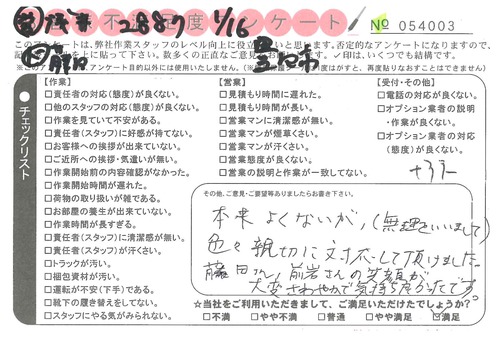 2887 1/16
不満度アンケート
No 054003
このアンケートは、弊社作業スタッフのレベル向上に役立
否定的なアンケートになりますので、
数多くの正直なご意見
✓印は、いくつでも結構です。
チェックリスト
【作業】
□責任者の対応(態度)が良くない。
□他のスタッフの対応(態度)が良くない。
□作業を見ていて不安がある。
□責任者(スタッフ)に好感が持てない。
□お客様への挨拶が出来ていない。
□ご近所への挨拶・気遣いが無い。
□作業開始前の内容確認がなかった。
□作業開始時間が遅れた。
□荷物の取り扱いが雑である。
□お部屋の養生が出来ていない。
□作業時間が長すぎる。
□責任者(スタッフ)に清潔感が無い。
□責任者(スタッフ)が汗くさい。
□トラックが汚い。
□梱包資材が汚い。
□運転が不安(下手)である。
□靴下の履き替えをしてない。
□スタッフにやる気がみられない。
【営業】
□見積もり時間に遅れた。
□見積もり時間が長い。
□営業マンに清潔感が無い。
□営業マンが煙草くさい。
□営業マンが汗くさい。
□営業態度が良くない。
□営業の説明と作業が一致してない。
【受付・その他】
□電話の対応が良くない。
□オプション業者の説明
・作業が良くない。
□オプション業者の対応
(態度)が良くない。
その他、ご意見・ご要望等ありましたらお書き下さい。
本来よくないが、(無理をいいまして)
色々親切に対応して頂けました。
藤田さん、前岩さんの笑顔が
大変さわやかで気持ち良かったです。
☆当社をご利用いただきまして、ご満足いただけたでしょうか?
□不満 □やや不満 □普通 □やや満足 ☑満足